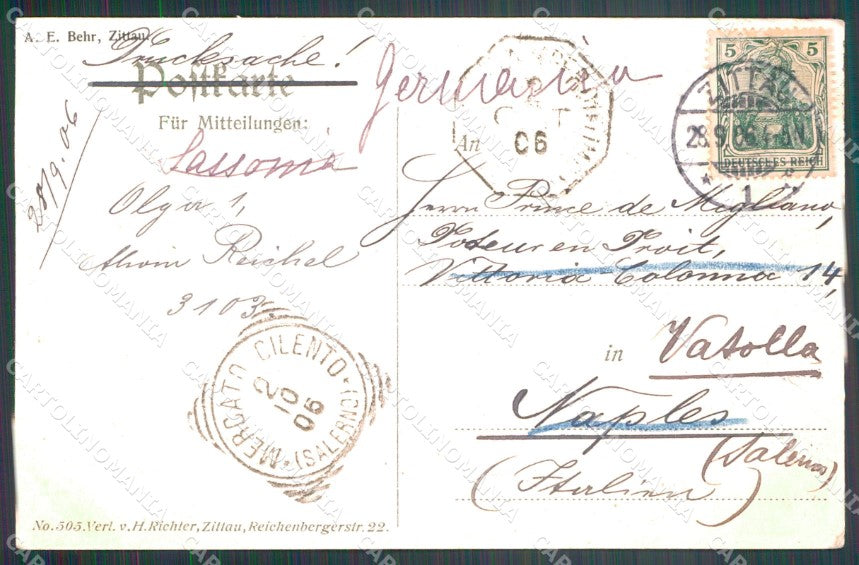 A. E. Behr, Zittau.
Drucksache!
Postkarte
Germania
Für Mitteilungen:
Sassonia
28/9.06
Olga 1,
Alwin Reichel
3103
MERCATO CILENTO (SALERNO)
2 10 06
06
5 5
DEUTSCHES REICH
ZITTAU
28.9.06
* 1
An
Herrn Prince de Migliano,
Docteur en Droit,
Vittoria Colonna 14,
in Vatolla
Naples
(Salerno)
(Italien)
No. 505. Verl. v. H. Richter, Zittau, Reichenbergerstr. 22.
CARTOLINOMANIA